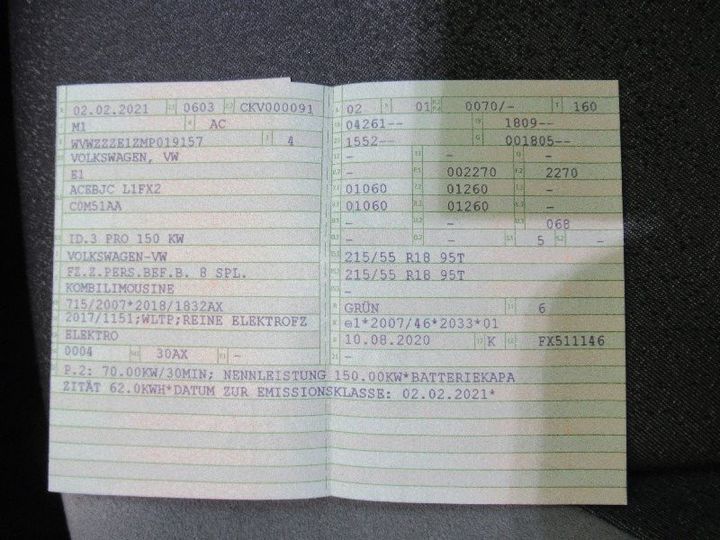 02.02.2021 0603 CKV000091
M1 AC
WVWZZZE1ZMP019157 4
VOLKSWAGEN, VW
E1
ACEBJC L1FX2
C0M51AA
ID.3 PRO 150 KW
VOLKSWAGEN-VW
FZ.Z.PERS.BEF.B. 8 SPL.
KOMBILIMOUSINE
715/2007*2018/1832AX
2017/1151;WLTP;REINE ELEKTROFZ
ELEKTRO
0004 30AX -
P.2: 70.00KW/30MIN; NENNLEISTUNG 150.00KW*BATTERIEKAPA
ZITÄT 62.0KWH*DATUM ZUR EMISSIONSKLASSE: 02.02.2021*
02 01 0070/- 160
04261-- 1809--
1552-- 001805--
- -
- 002270 2270
01060 01260 -
01060 01260 -
- - 068
- - 5 -
215/55 R18 95T
215/55 R18 95T
-
GRÜN 6
e1*2007/46*2033*01
10.08.2020 K FX511146
-